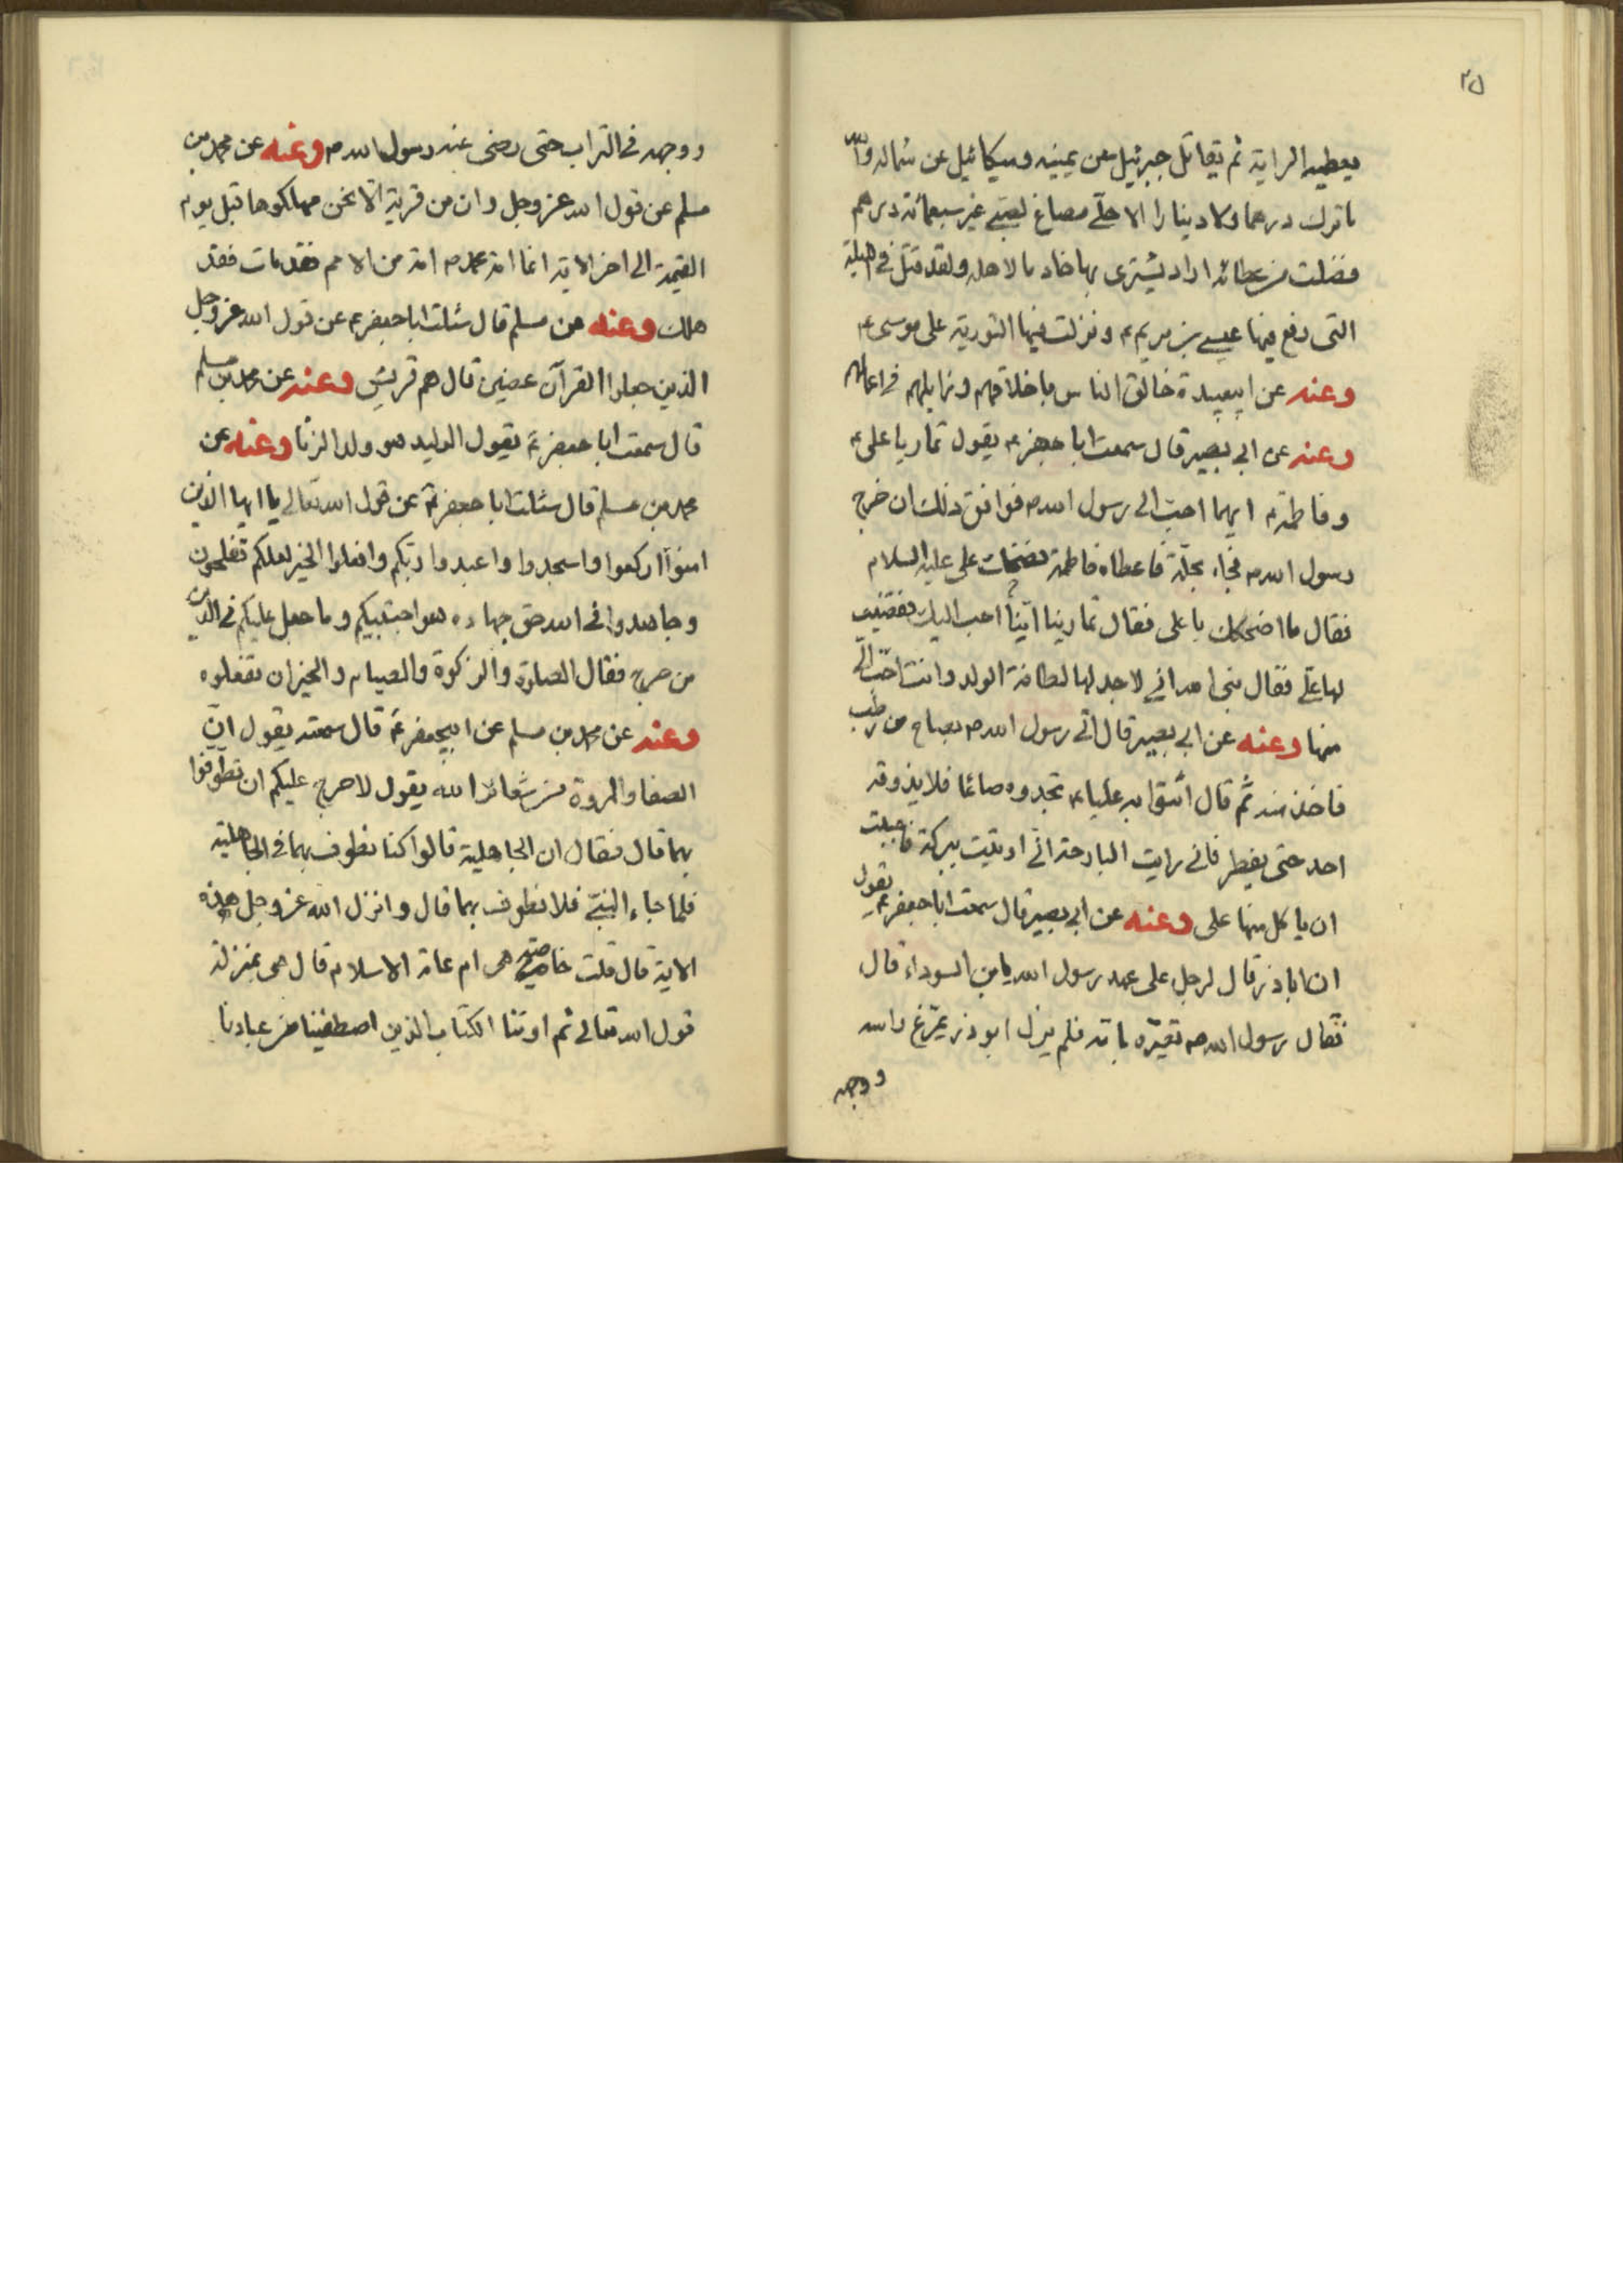 ٢٥
يعطيه الراية ثم يقاتل جبرئيل عن يمينه وميكائيل عن شماله والله
ما ترك درهما ولا دينارا الا حلّي مصاغ لصبّي غير سبعمائة درهم
فضلت من عطائه اراد يشترى بها خادما لاهله ولقد قتل في الليلة
التى رفع فيها عيسى بن مريم ع ونزلت فيها التورية على موسى ع
وعنه عن ابيعبيدة خالق الناس باخلاقهم وزايلهم في اعمالهم
وعنه عن ابي بصير قال سمعت ابا جعفر ع يقول تماريا على ع
وفاطمة ع ايهما احبّ الى رسول الله ص فوافق ذلك ان خرج
رسول الله ص فجاء بحلّة فاعطاه فاطمة فضحك على عليه السلام
فقال ما اضحكك يا على فقال تمارينا ايّنا احب اليك فقضيت
لها علّي فقال بنى الله انى لاجد لها لطافة الولد وانت احبّ الّي
منها وعنه عن ابي بصير قال اتى رسول الله ص بصاح من رطب
فاخذ منه ثم قال أتقوا به عليا ع تجدوه صائما فلا يذوقه
احد حتى يفطر فانى رايت البارحة انى اوتيت ببركة فاحببت
ان ياكل منها على وعنه عن ابي بصير قال سمعت ابا جعفر ع يقول
ان اباذر قال لرجل على عهد رسول الله يا بن السوداء قال
فقال رسول الله ص تعيّره بامّه فلم يزل ابوذر يمرّغ راسه
ووجهه
ووجهه في التراب حتى رضى عنه رسول الله ص وعنه عن محمد بن
مسلم عن قول الله عز وجل وان من قرية الّا نحن مهلكوها قبل يوم
القيمة الى اخر الاية انما امة محمد ص امة من الامم فقد مات فقد
هلك وعنه عن مسلم قال سئلت ابا جعفر ع عن قول الله عز وجل
الذين جعلوا القرآن عضين قال هم قريش وعنه عن محمد بن مسلم
قال سمعت ابا جعفر ع يقول الوليد هو ولد الزنا وعنه عن
محمد بن مسلم قال سئلت ابا جعفر ع عن قول الله تعالى يا ايها الذين
امنوا اركعوا واسجدوا واعبدوا ربّكم وافعلوا الخير لعلكم تفلحون
وجاهدوا فى الله حق جهاده هو اجتبيكم وما جعل عليكم في الدين
من حرج فقال الصلوة والزكوة والصيام والخير ان تفعلوه
وعنه عن محمد بن مسلم عن ابيجعفر ع قال سمعته يقول انّ
الصفا والمروة من شعائر الله يقول لا حرج عليكم ان تطوّفوا
بهما قال فقال ان الجاهلية قالوا كنا نطوف بهما في الجاهلية
فلما جاء النبّي فلا نطوف بهما قال وانزل الله عز وجل هذه
الاية قال قلت خاصّة هى ام عامة الاسلام قال هى بمنزلة
قول الله تعالى ثم اورثنا الكتاب الذين اصطفينا من عبادنا